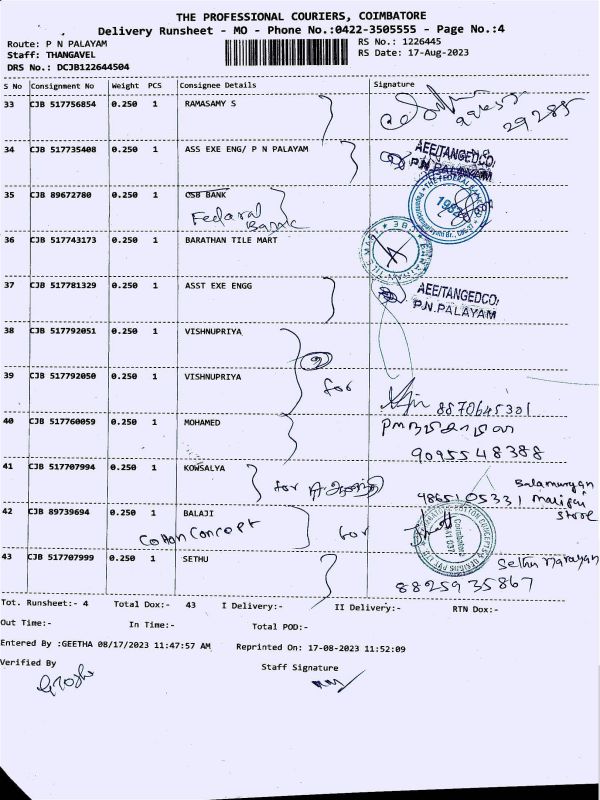 THE PROFESSIONAL COURIERS, COIMBATORE
Delivery Runsheet - MO - Phone No.:0422-3505555 - Page No.:4
Route: P N PALAYAM
Staff: THANGAVEL
DRS No.: DCJB122644504
RS No.: 1226445
RS Date: 17-Aug-2023
S No Consignment No Weight PCS Consignee Details Signature
33 CJB 517756854 0.250 1 RAMASAMY S
34 CJB 517735408 0.250 1 ASS EXE ENG/ P N PALAYAM
AEE/TANGEDCO,
P.N.PALAYAM
35 CJB 89672780 0.250 1 CSB BANK
Federal
Bank
THE FEDERAL BANK
36 CJB 517743173 0.250 1 BARATHAN TILE MART
37 CJB 517781329 0.250 1 ASST EXE ENGG
AEE/TANGEDCO,
P.N.PALAYAM
38 CJB 517792051 0.250 1 VISHNUPRIYA
2
39 CJB 517792050 0.250 1 VISHNUPRIYA
for
8870645301
40 CJB 517760059 0.250 1 MOHAMED
9095548388
41 CJB 517707994 0.250 1 KOWSALYA
for
9865105331
Balamurugan
Store
42 CJB 89739694 0.250 1 BALAJI
Cotton Concept
for
Coimbatore
641 037
43 CJB 517707999 0.250 1 SETHU
Sethu Narayan
8825935867
Tot. Runsheet:- 4 Total Dox:- 43 I Delivery:- II Delivery:- RTN Dox:-
Out Time:- In Time:- Total POD:-
Entered By :GEETHA 08/17/2023 11:47:57 AM Reprinted On: 17-08-2023 11:52:09
Verified By Staff Signature